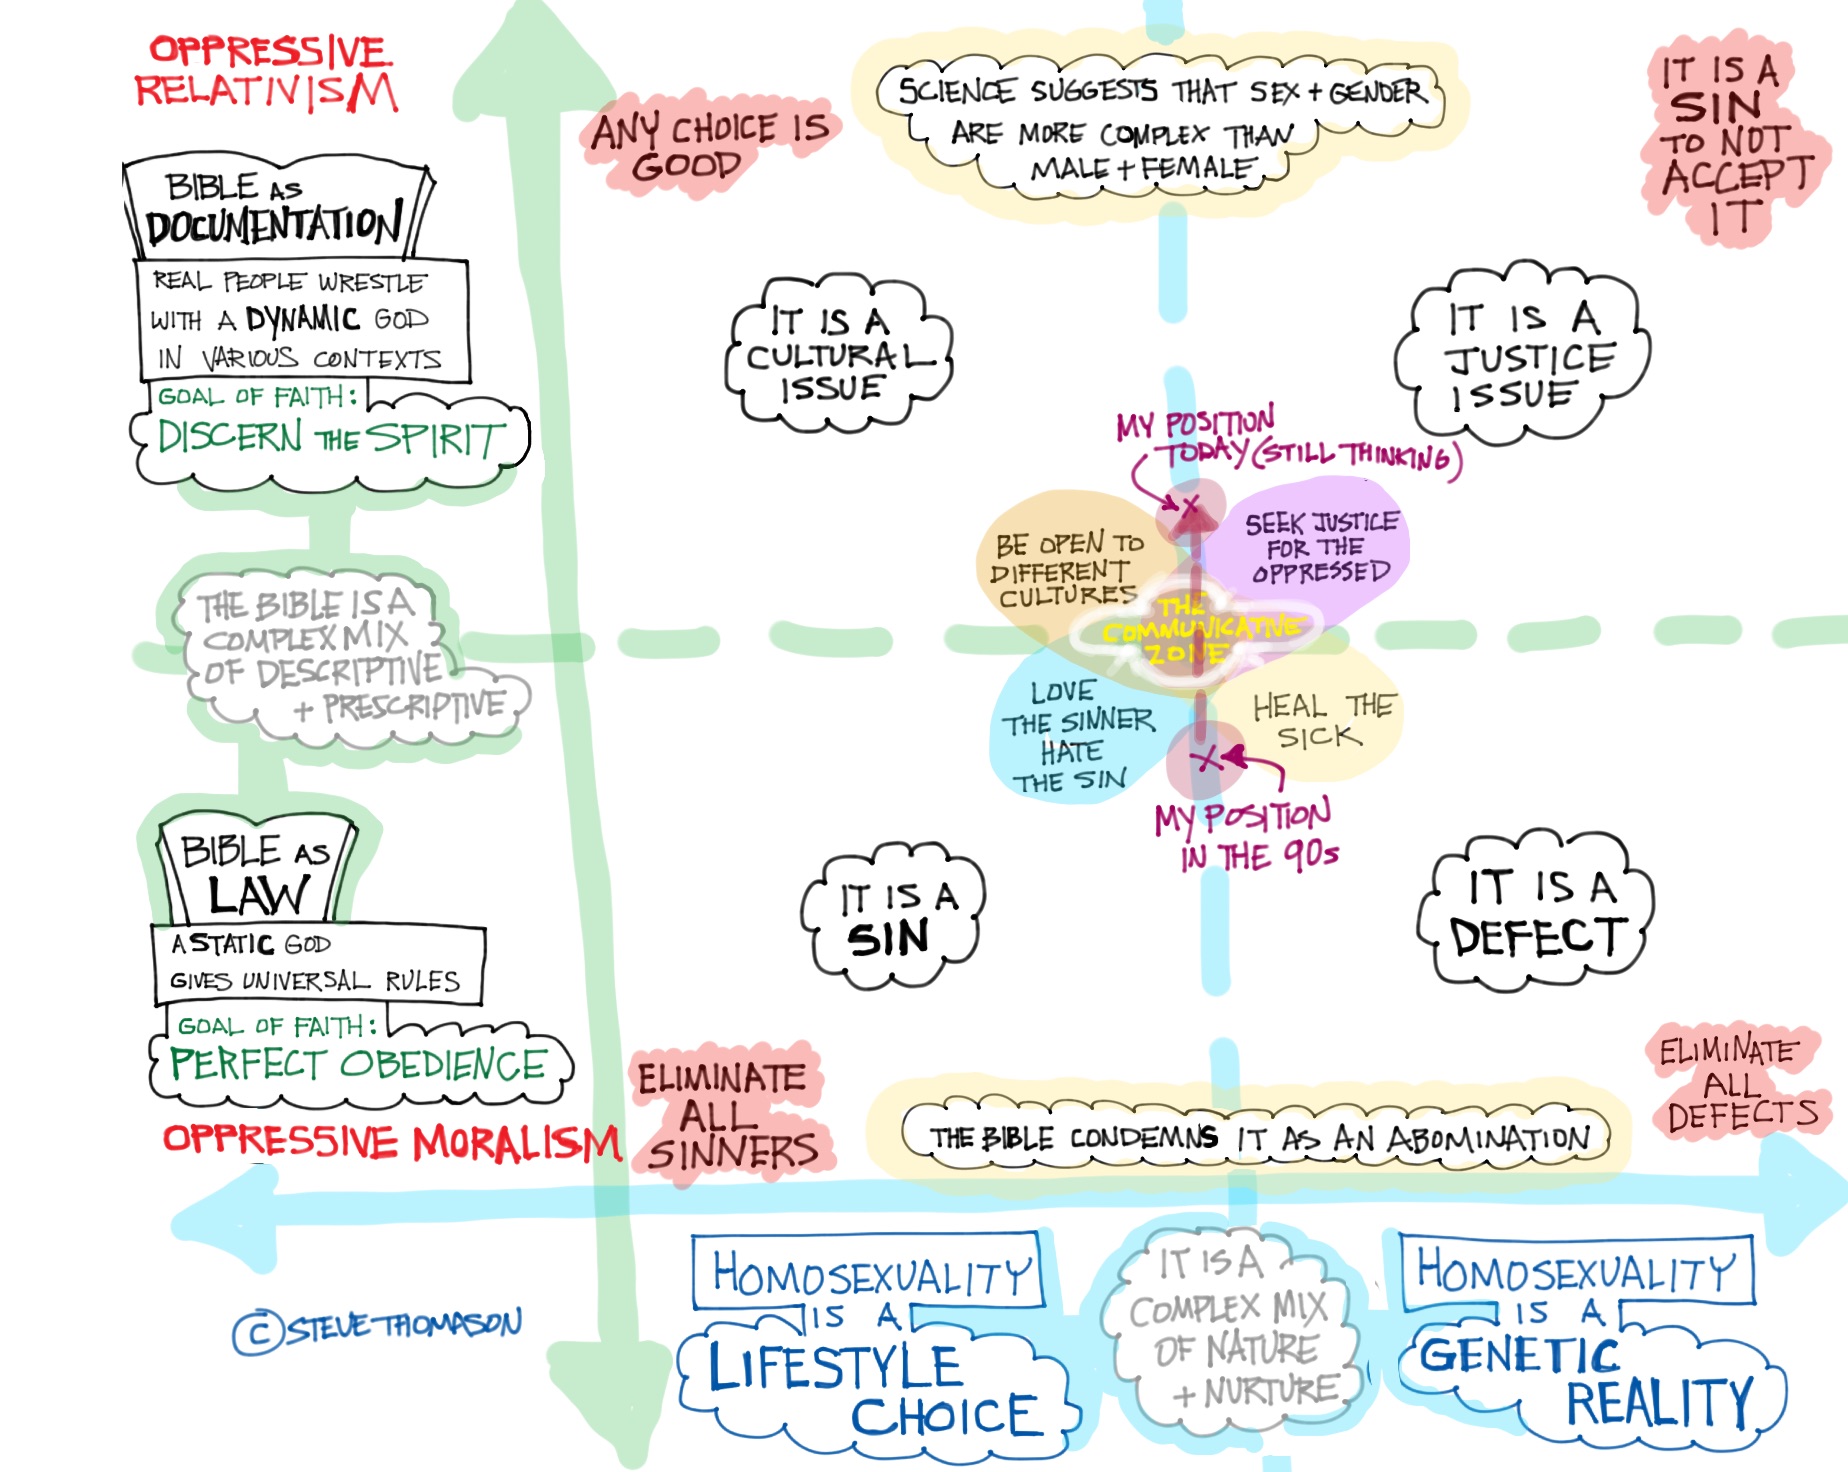 OPPRESSIVE
RELATIVISM
BIBLE AS
DOCUMENTATION
REAL PEOPLE WRESTLE
WITH A DYNAMIC GOD
IN VARIOUS CONTEXTS
GOAL OF FAITH:
DISCERN THE SPIRIT
THE BIBLE IS A
COMPLEX MIX
OF DESCRIPTIVE
+ PRESCRIPTIVE
BIBLE AS
LAW
A STATIC GOD
GIVES UNIVERSAL RULES
GOAL OF FAITH:
PERFECT OBEDIENCE
OPPRESSIVE MORALISM
ANY CHOICE IS
GOOD
SCIENCE SUGGESTS THAT SEX + GENDER
ARE MORE COMPLEX THAN
MALE + FEMALE
IT IS A
SIN
TO NOT
ACCEPT
IT
IT IS A
CULTURAL
ISSUE
IT IS A
JUSTICE
ISSUE
MY POSITION
TODAY (STILL THINKING)
X
BE OPEN TO
DIFFERENT
CULTURES
SEEK JUSTICE
FOR THE
OPPRESSED
THE
COMMUNICATIVE
ZONE
LOVE
THE SINNER
HATE
THE SIN
HEAL THE
SICK
X
MY POSITION
IN THE 90s
IT IS A
SIN
IT IS A
DEFECT
ELIMINATE
ALL
SINNERS
THE BIBLE CONDEMNS IT AS AN ABOMINATION
ELIMINATE
ALL
DEFECTS
© STEVE THOMASON
HOMOSEXUALITY
IS A
LIFESTYLE
CHOICE
IT IS A
COMPLEX MIX
OF NATURE
+ NURTURE
HOMOSEXUALITY
IS A
GENETIC
REALITY